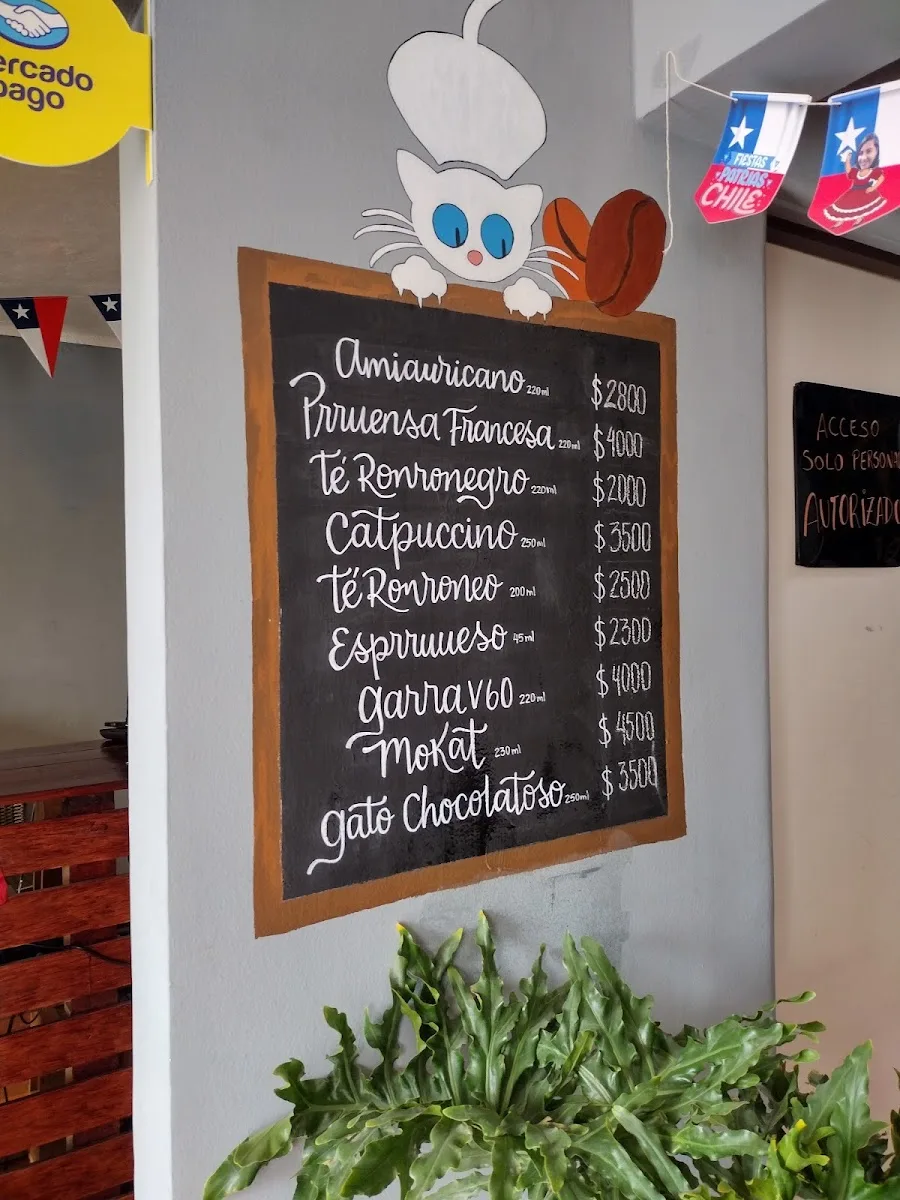 ercado
pago
FIESTAS
PATRIAS
CHILE
Amiauricano 220ml $2800
Prruensa Francesa 220ml $4000
té Ronronegro 220ml $2000
Catpuccino 250ml $3500
té Ronroneo 200ml $2500
Esprruueso 45ml $2300
garra V60 220ml $4000
MoKat 230ml $4500
gato Chocolatoso 250ml $3500
ACCESO
SOLO PERSONA
AUTORIZADO